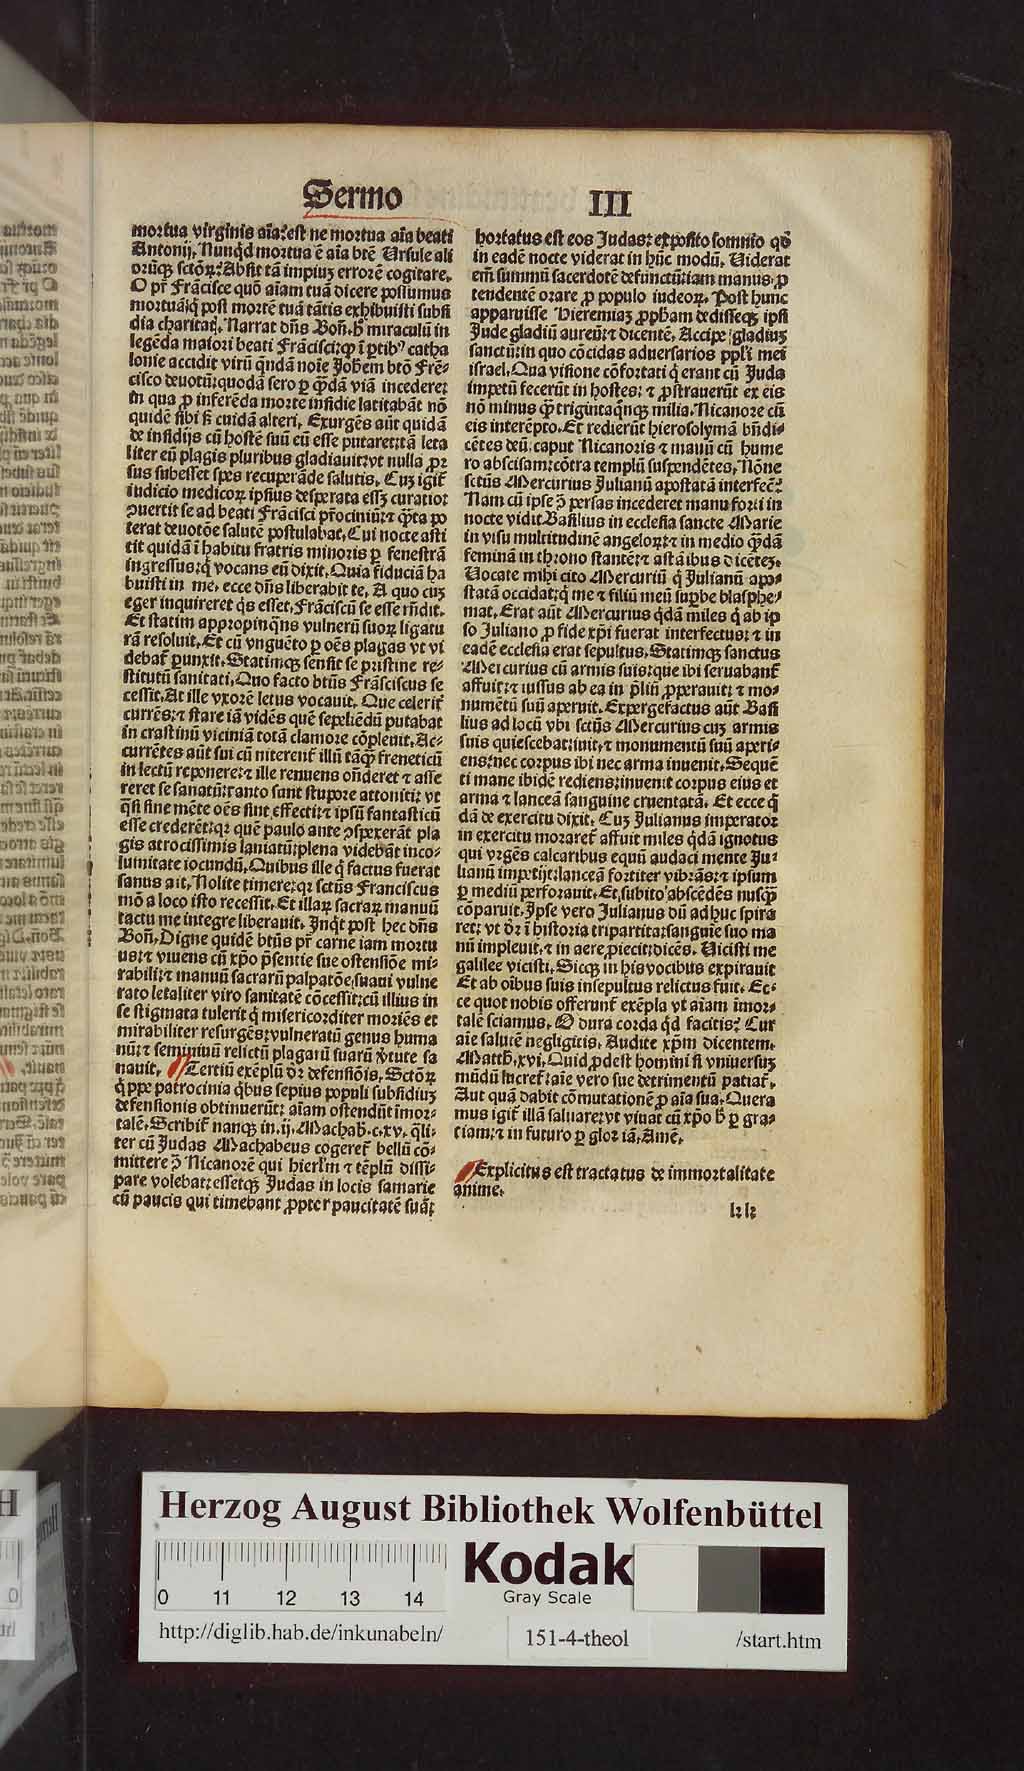 Sermo III
mortua virginis aīa? est ne mortua aīa beati
Antonij. Nunqͥd mortua ē aīa btē Ursule ali
orūqꝫ sctōꝝ? Absit tā impiuꝫ errorē cogitare.
O pr̄ Frācisce quō aīam tuā dicere possumus
mortuā: q̇ post mortē tuā tātis exhibuisti subsi
dia charitatꝭ. Narrat dn̄s Bon̄. ħ miraculū in
legēda maiori beati Frācisci: ꝙ ī ꝑtibꝰ catha
lonie accidit virū qn̄dā noīe Joħem btō Frē-
cisco deuotū: quodā sero ꝑ qͣndā viā incedere:
in qua ꝓ inferēda morte insidie latitabāt nō
quidē sibi sꝫ cuidā alteri. Exurgēs aūt quidā
de insidijs cū hostē suū cū esse putaret: tā leta
liter eū plagis pluribus gladiauit: vt nulla ꝓr
sus subesset spes recuperāde salutis. Cuꝫ igit᷑
iudicio medicoꝝ ipsius desperata essꝫ curatio:
ꝯuertit se ad beati Frācisci pr̄ociniū: ⁊ qͣꝫta po
terat deuotōe salutē postulabat. Cui nocte asti
tit quidā ī habitu fratris minoris ꝑ fenestrā
ingressus: q̇ vocans eū dixit. Quia fiduciā ha
buisti in me. ecce dn̄s liberabit te. A quo cuꝫ
eger inquireret qͥs esset, Frāciscū se esse rn̄dit.
Et statim appropinqͣns vulnerū suoꝝ ligatu
rā resoluit. Et cū vnguēto ꝑ oēs plagas vt vi
debat᷑ ꝑunxit. Statimqꝫ sensit se pristine re-
stitutū sanitati. Quo facto btūs Frāsciscus se
cessit. At ille vxorē letus vocauit. Que celerit᷑
currēs: ⁊ stare iā vidēs quē sepeliēdū putabat
in crastinū viciniā totā clamore cōpleuit. Ac-
currētes aūt sui cū niterent᷑ illū tāqͣꝫ freneticū
in lectū reponere: ⁊ ille renuens on̄deret ⁊ asse
reret se sanatū: tanto sant stupore attoniti: vt
qͣsi sine mēte oēs sint effecti: ⁊ ipsū fantasticū
esse crederēt: qꝛ quē paulo ante ꝯspexerāt pla
gis atrocissimis laniatū: plena videbāt inco-
lumitate iocundū. Quibus ille q̇ factus fuerat
sanus ait. Nolite timere: qꝛ sctūs Franciscus
mō a loco isto recessit. Et illaꝝ sacraꝝ manuū
tactu me integre liberauit. Jnqͥt post hec dn̄s
Bon̄. Digne quidē btūs pr̄ carne iam mortu
us: ⁊ viuens cū xp̄o p̄sentie sue ostensiōe mi-
rabili: ⁊ manuū sacrarū palpatōe suaui vulne
rato letaliter viro sanitatē cōcessit: cū illius in
se stigmata tulerit q̇ misericorditer moriēs et
mirabiliter resurgēs: vulneratū genus huma
nū: ⁊ semiuiuū relictū plagarū suarū v̓tute sa
nauit. Tertiū exēplū dr̄ defensiōis. Sctōꝝ
q̇ppe patrocinia qͥbus sepius populi subsidiuꝫ
defensionis obtinuerūt: aīam ostendūt īmor-
talē. Scribit᷑ nanqꝫ in.ij. Machab. c.xv. qͣli-
ter cū Judas Machabeus cogeret᷑ bellū cō-
mittere ꝯ̄ Nicanorē qui hierl̄m ⁊ tēplū dissi-
pare volebat: essetqꝫ Judas in locis samarie
cū paucis qui timebant ꝓpter paucitatē suā:
hortatus est eos Judas: exposito somnio qͦd
in eadē nocte viderat in hūc modū. Uiderat
em̄ summū sacerdotē defunctū: iam manus ꝓ
tendentē orare ꝓ populo iudeoꝝ. Post hunc
apparuisse Hieremiaꝫ ꝓpħam dedisseqꝫ ipsi
Jude gladiū aureū: ⁊ dicentē. Accipe gladiuꝫ
sanctū: in quo cōcidas aduersarios ppl̄i mei
israel. Qua visione cōfortati q̇ erant cū Juda
impetū fecerūt in hostes: ⁊ ꝓstrauerūt ex eis
nō minus qͣꝫ trigintaqͥnqꝫ milia. Nicanore cū
eis interēpto. Et redierūt hierosolymā bn̄di-
cētes deū: caput Nicanoris ⁊ manū cū hume
ro abscisam: cōtra templū suspendētes. Nōne
sctūs Mercurius Julianū apostatā interfec̄?
Nam cū ipse ꝯ̄ persas incederet manu forti in
nocte vidit Basilius in ecclesia sancte Marie
in visu multitudinē angeloꝝ: ⁊ in medio qͣndā
feminā in throno stantē: ⁊ astātibus dicēteꝫ.
Uocate mihi cito Mercuriū q̇ Julianū apo-
statā occidat: q̇ me ⁊ filiū meū suꝑbe blasphe-
mat. Erat aūt Mercurius qͥdā miles q̇ ab ip
so Juliano ꝓ fide xp̄i fuerat interfectus: ⁊ in
eadē ecclesia erat sepultus. Statimqꝫ sanctus
Mercurius cū armis suis: que ibi seruabant᷑
affuit: ⁊ iussus ab ea in p̄liū ꝓperauit: ⁊ mo-
numētū suū aperuit. Expergefactus aūt Basi
lius ad locū vbi sctūs Mercurius cuꝫ armis
suis quiescebat: iuit, ⁊ monumentū suū aperi-
ens: nec corpus ibi nec arma inuenit. Sequē
ti mane ibidē rediens: inuenit corpus eius et
arma ⁊ lanceā sanguine cruentatā. Et ecce qͥ
dā de exercitu dixit. Cuꝫ Julianus imperator
in exercitu moraret᷑ affuit miles qͥdā ignotus
qui vrgēs calcaribus equū audaci mente Ju-
lianū impetijt: lanceā fortiter vibrās: ⁊ ipsum
ꝑ mediū perforauit. Et subito abscēdēs nusqͣꝫ
cōparuit. Jpse vero Julianus dū adhuc spira
ret: vt dr̄ ī historia tripartita: sanguīe suo ma
nū impleuit, ⁊ in aere ꝓiecit: dicēs. Uicisti me
galilee vicisti. Sicqꝫ in his vocibus expirauit
Et ab oībus suis insepultus relictus fuit. Ec-
ce quot nobis offerunt᷑ exēpla vt aīam īmor-
talē sciamus. O dura corda qͥd facitis? Cur
aīe salutē negligitis. Audite xp̄m dicentem.
Matth. xvi. Quid ꝓdest homini si vniuersuꝫ
mūdū lucret᷑: aīe vero sue detrimentū patiat᷑.
Aut quā dabit cōmutationē ꝓ aīa sua. Quera
mus igit᷑ illā saluare: vt viuat cū xp̄o ħ ꝑ gra-
tiam: ⁊ in futuro ꝑ gloriā. Amē.
Explicitus est tractatus de immortalitate
anime.
kk
Herzog August Bibliothek Wolfenbüttel
Kodak
Gray Scale
0 11 12 13 14
http://diglib.hab.de/inkunabeln/ 151-4-theol /start.htm